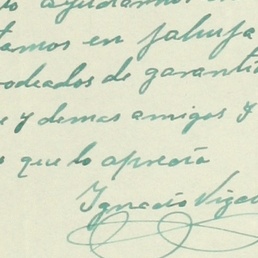 ayudarnos
tamos en
rodeados de garantia
e y demas amigos y
s que lo aprecia
Ignacio Vigal